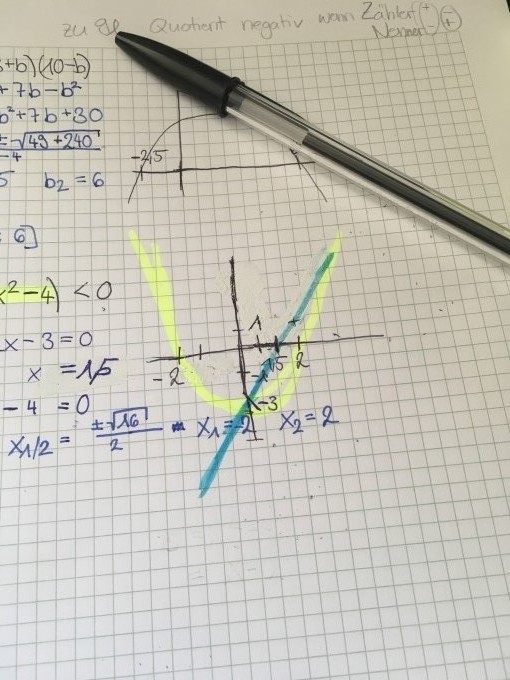 zu Quotient negativ wenn Zähler (-) (+)
Nenner (+)
+b)(10-b)
+7b-b²
b²+7b+30
±√49+240
-4
-2,5
5 b₂ = 6
6]
x²-4) < 0
x-3=0
x = 1,5
-4 = 0
x₁/₂ = ±√16 / 2 = x₁=-2 x₂=2
1
-2 -1 1,5 2
-3